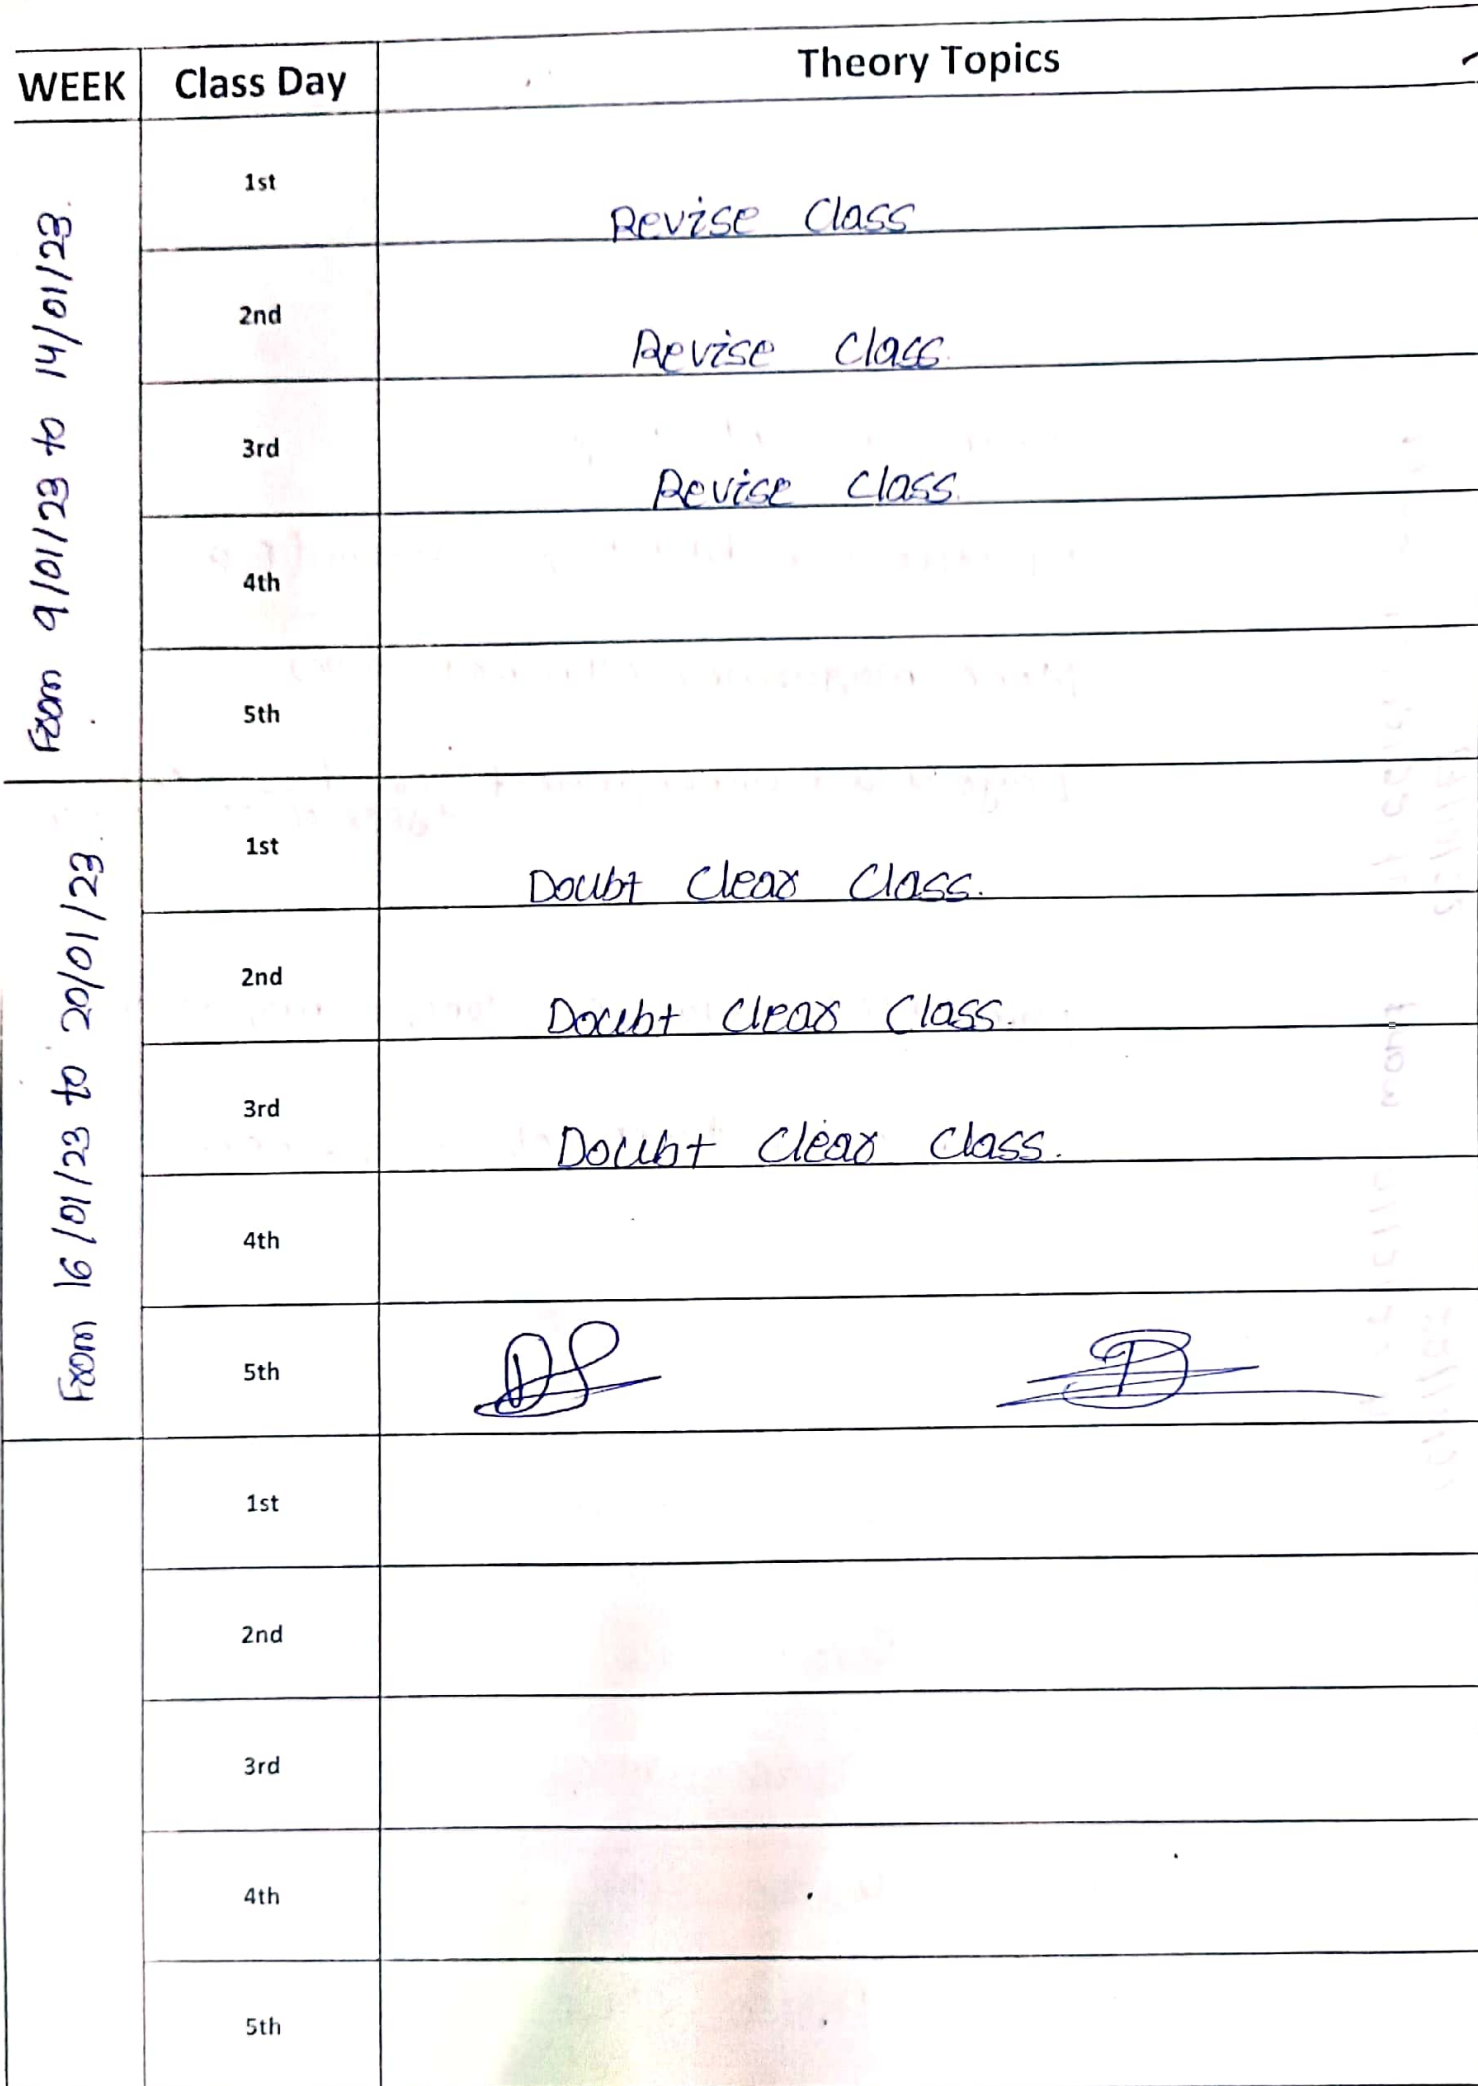 WEEK Class Day Theory Topics
From 9/01/23 to 14/01/23
1st Revise Class
2nd Revise Class
3rd Revise Class
4th
5th
From 16/01/23 to 20/01/23
1st Doubt Clear Class.
2nd Doubt Clear Class.
3rd Doubt Clear Class.
4th
5th
1st
2nd
3rd
4th
5th